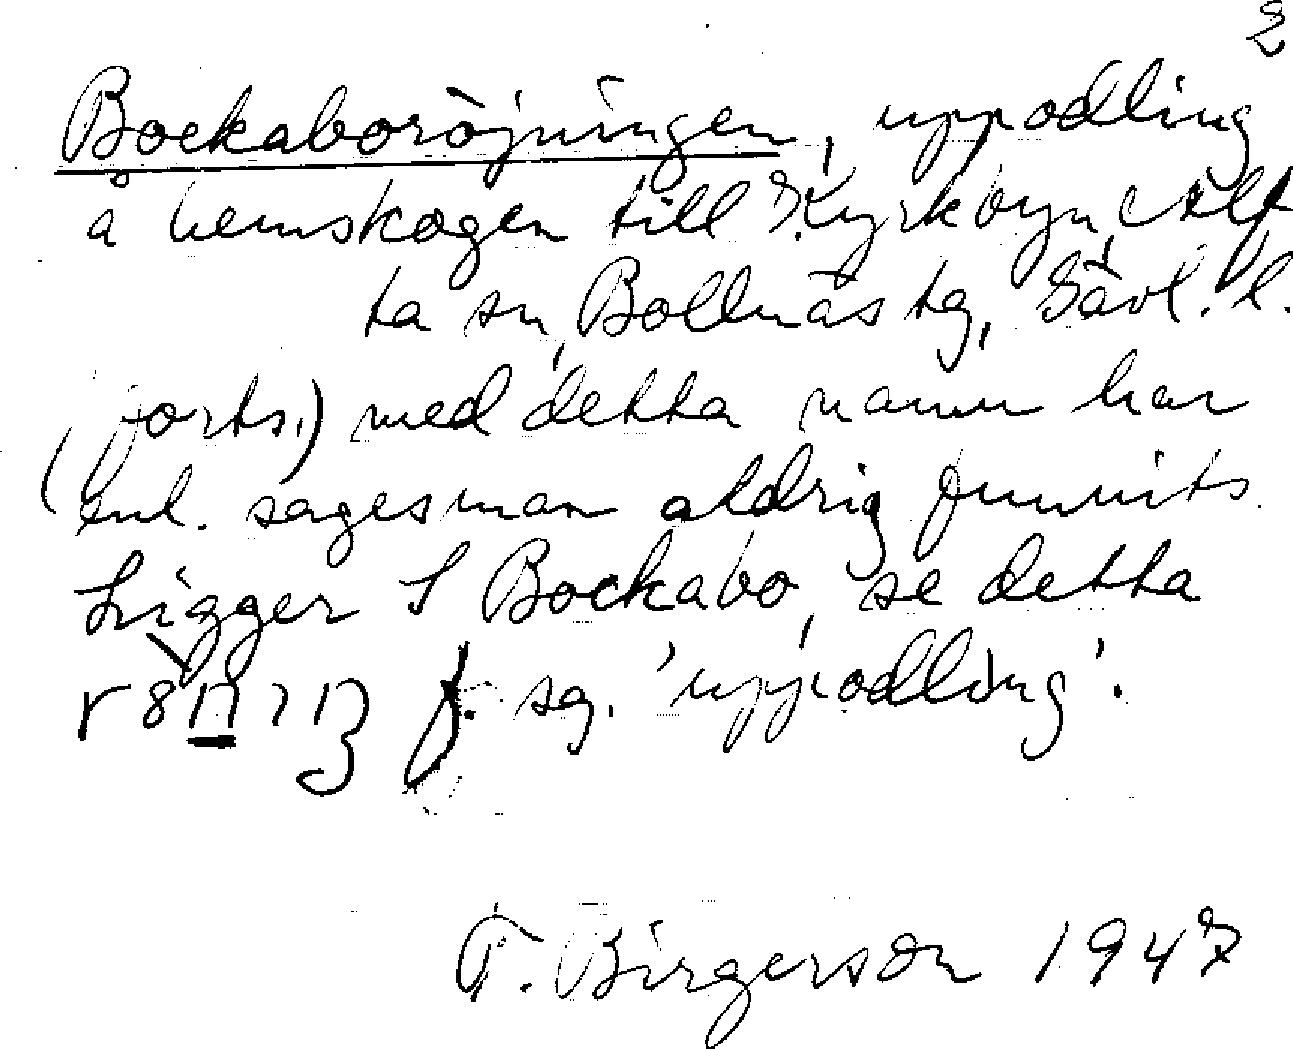 2
Bockaboröjningen, uppodling
å hemskogen till Kyrkbyn, Alf
ta sn, Bollnäs tg, Gävl. l.
(forts.) med detta namn har
enl. sagesman aldrig funnits.
Ligger S Bockabo, se detta
f. sg. 'uppodling'.
T. Birgerson 1947